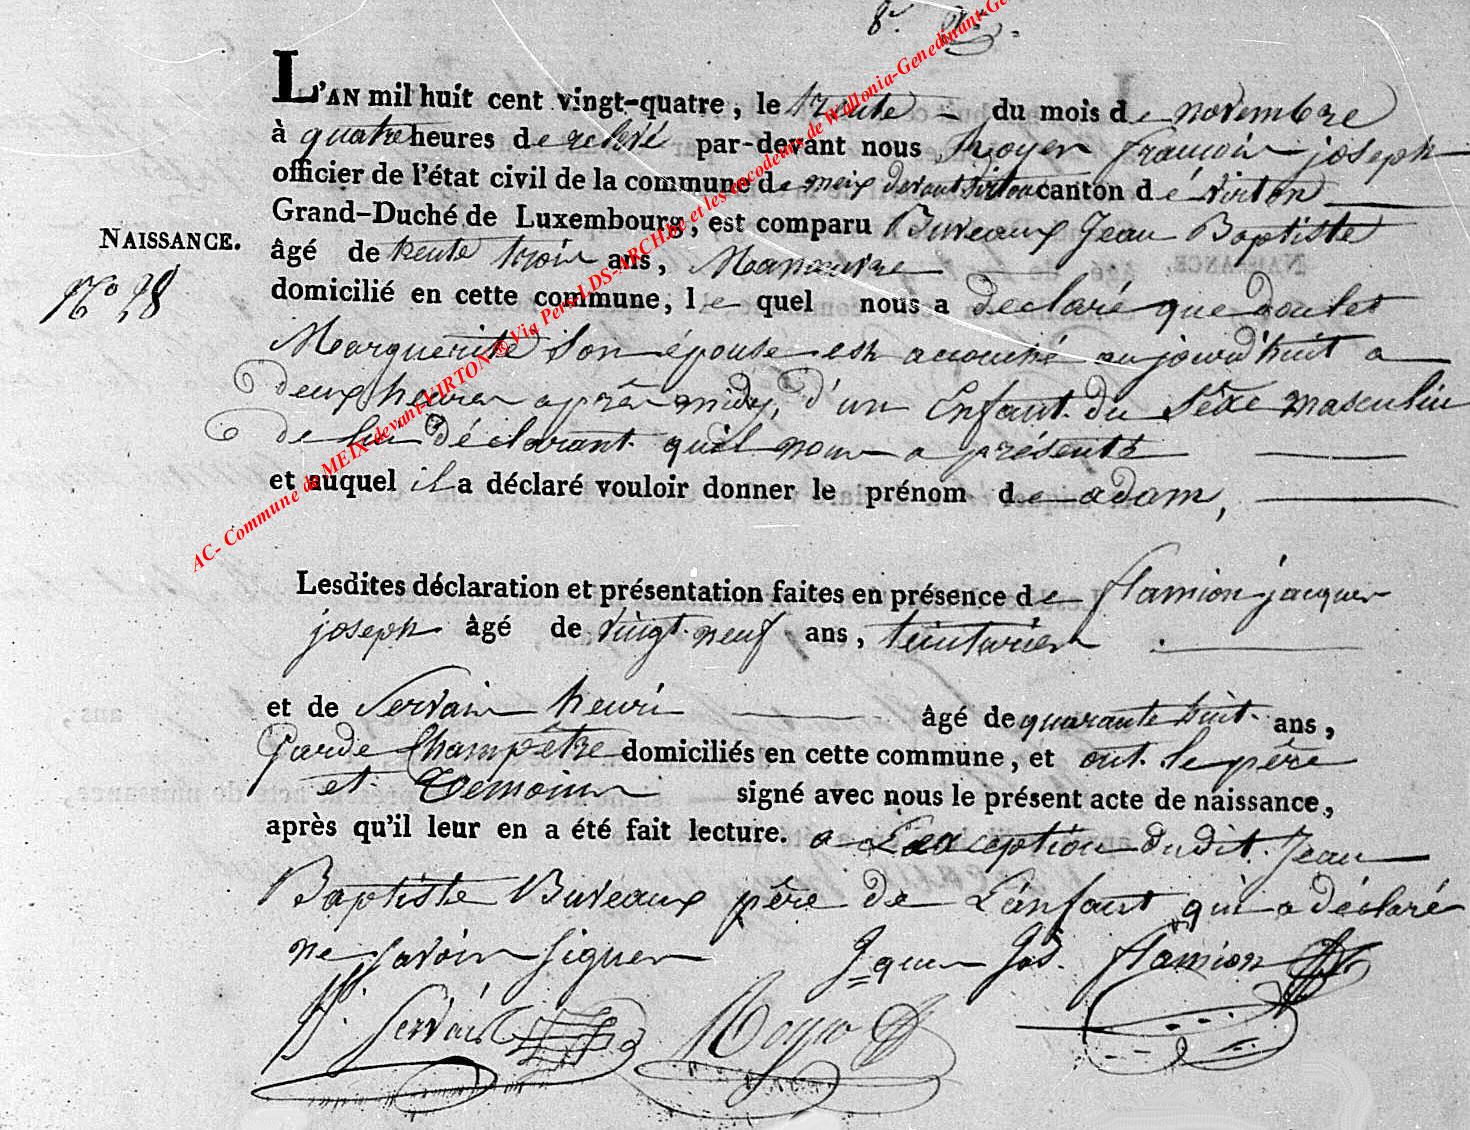 8e
L'AN mil huit cent vingt-quatre, le trente du mois de novembre
à quatre heures de relevé par-devant nous Royer francois joseph
officier de l'état civil de la commune de meix devant virton canton dé virton
Grand-Duché de Luxembourg, est comparu Buveaux Jean Baptiste
NAISSANCE.
âgé de trente trois ans, Manouvre
N° 28
domicilié en cette commune, le quel nous a declaré que Goulet
Marguerite son épouse est acouché aujourd'huit a
deux heures après midy, d'un Enfant du Sêxe masculin
de lui déclarant quil nous a présenté
et auquel il a déclaré vouloir donner le prénom de adam,
Lesdites déclaration et présentation faites en présence de flamion jacques
joseph âgé de vingt neuf ans, teinturier
et de Servais henri âgé de quarante huit ans,
Garde Champêtre domiciliés en cette commune, et ont le père
et Temoins signé avec nous le présent acte de naissance,
après qu'il leur en a été fait lecture. a L'exception dudit Jean
Baptiste Buveaux père de L'enfant qui a déclaré
ne savoir signer Jques Jos. flamion
H. Servais Royer
AC- Commune de MEIX devant VIRTON ® Via Pers-LDS-ARCH.be et les encodeurs de Wallonia-Genedinant-Ge